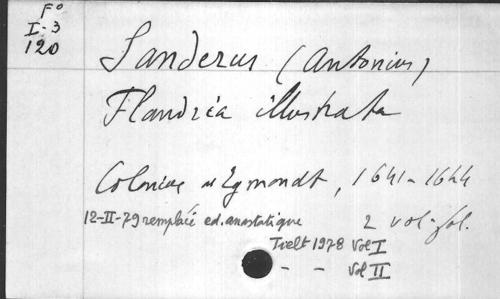 Fº
I-3
120
Sanderus (Antonius)
Flandria illustrata
Coloniae Egmondt, 1641-1644
12-II-79 remplacée ed. anastatique 2 vol. fol.
Tielt 1978 Vol I
- - Vol II